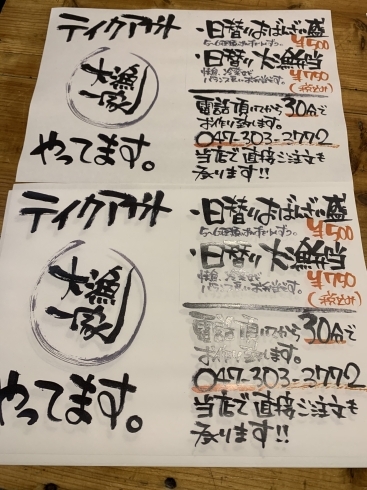 テイクアウト
大漁
一家
やってます。
・日替りおばんざい盛
¥500
・日替り大漁弁当
¥750
(税込み)
電話頂いてから30分で
お作り致します。
047-303-3772
当店で直接ご注文も
承ります!!
テイクアウト
大漁
一家
やってます。
・日替りおばんざい盛
¥500
・日替り大漁弁当
¥750
(税込み)
電話頂いてから30分で
お作り致します。
047-303-3772
当店で直接ご注文も
承ります!!